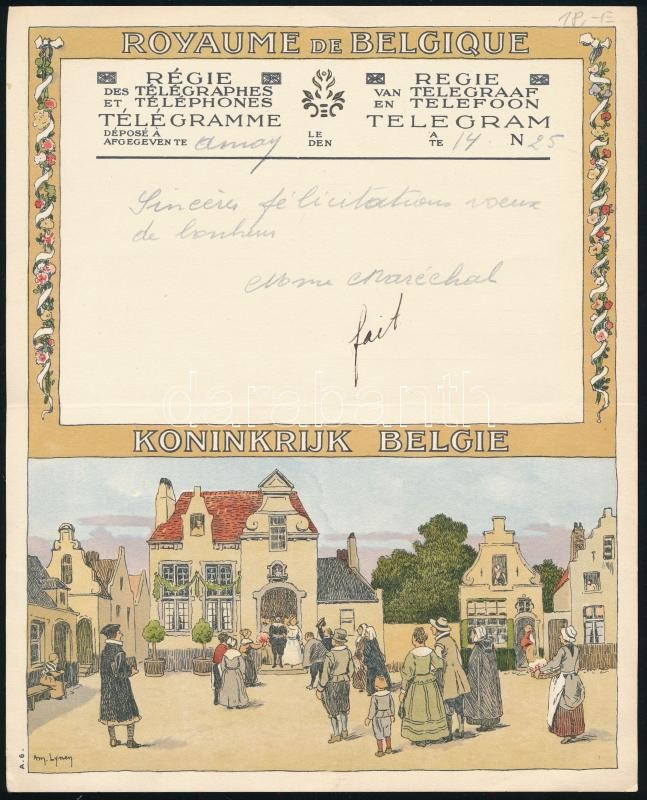 18,-E
ROYAUME DE BELGIQUE
RÉGIE
DES TÉLÉGRAPHES
ET TÉLÉPHONES
TÉLÉGRAMME
REGIE
VAN TELEGRAAF
EN TELEFOON
TELEGRAM
DÉPOSÉ À
AFGEGEVEN TE Amay
LE
DEN
A
TE 14 N 25
Sincères félicitations voeux
de bonheur
Mme Maréchal
fait
darabanth
KONINKRIJK BELGIE
A. 6.
Am. Lynen